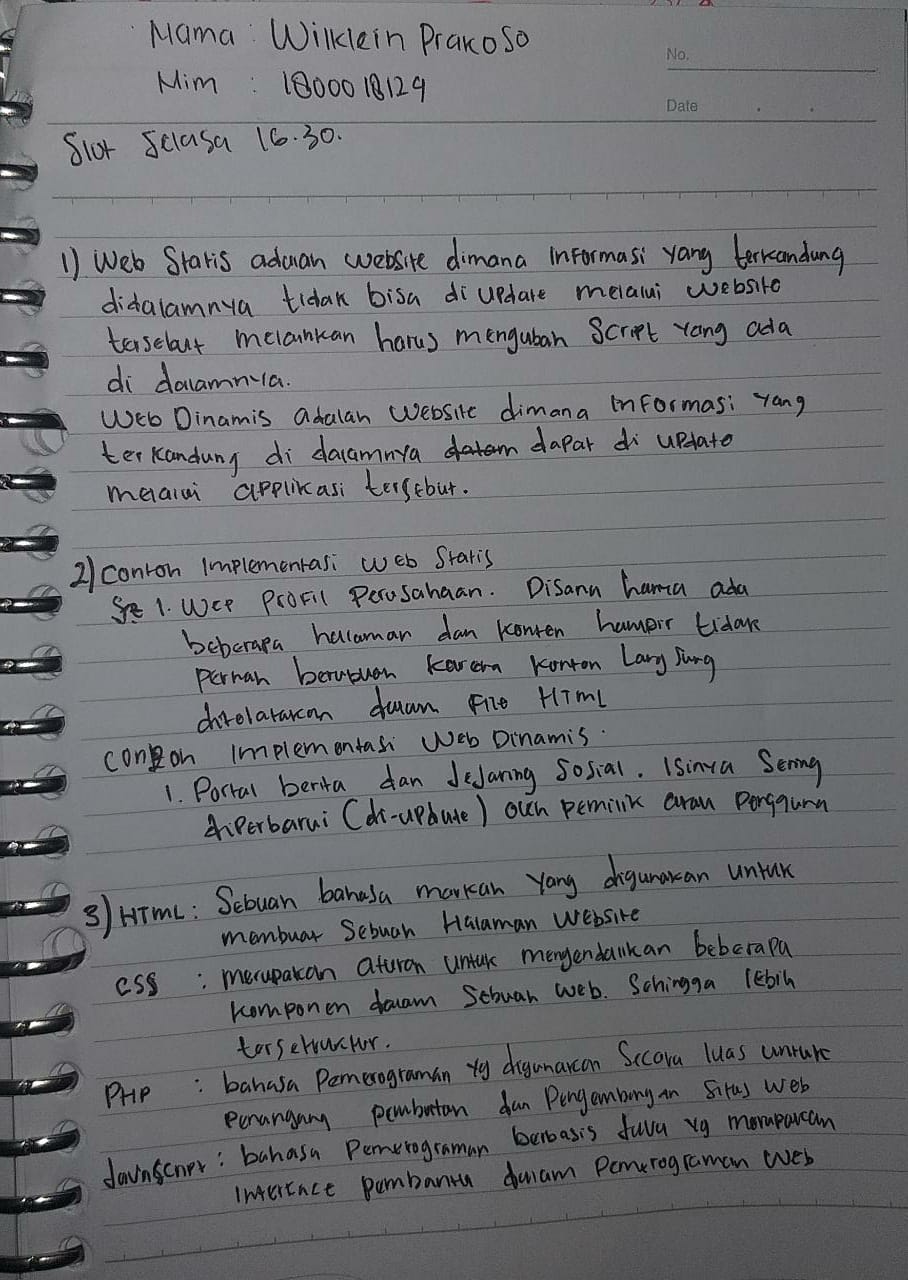 Nama : Wilklein Prakoso
No.
Nim : 1800018129
Date
Slot Selasa 16.30.
1) Web Statis adalah website dimana informasi yang terkandung
didalamnya tidak bisa di update melalui website
tersebut melainkan harus mengubah Script yang ada
di dalamnya.
Web Dinamis adalah website dimana informasi yang
terkandung di dalamnya dalam dapat di update
melalui applikasi tersebut.
2) Contoh Implementasi Web Statis
1. Web Profil Perusahaan. Disana hanya ada
beberapa halaman dan konten hampir tidak
pernah berubah karena konten langsung
diletakkan dalam File HTML
Contoh Implementasi Web Dinamis.
1. Portal berita dan Jejaring Sosial. Isinya Sering
diperbarui (di-update) oleh pemilik atau pengguna
3) HTML : Sebuah bahasa markah yang digunakan untuk
membuat Sebuah Halaman Website
CSS : merupakan aturan untuk mengendalikan beberapa
komponen dalam Sebuah web. Sehingga lebih
terstruktur.
PHP : bahasa Pemerograman yg digunakan Secara luas untuk
penanganan pembuatan dan Pengembangan Situs Web
Javascript : bahasa Pemerograman berbasis Java yg merupakan
interface pembantu dalam Pemerograman Web